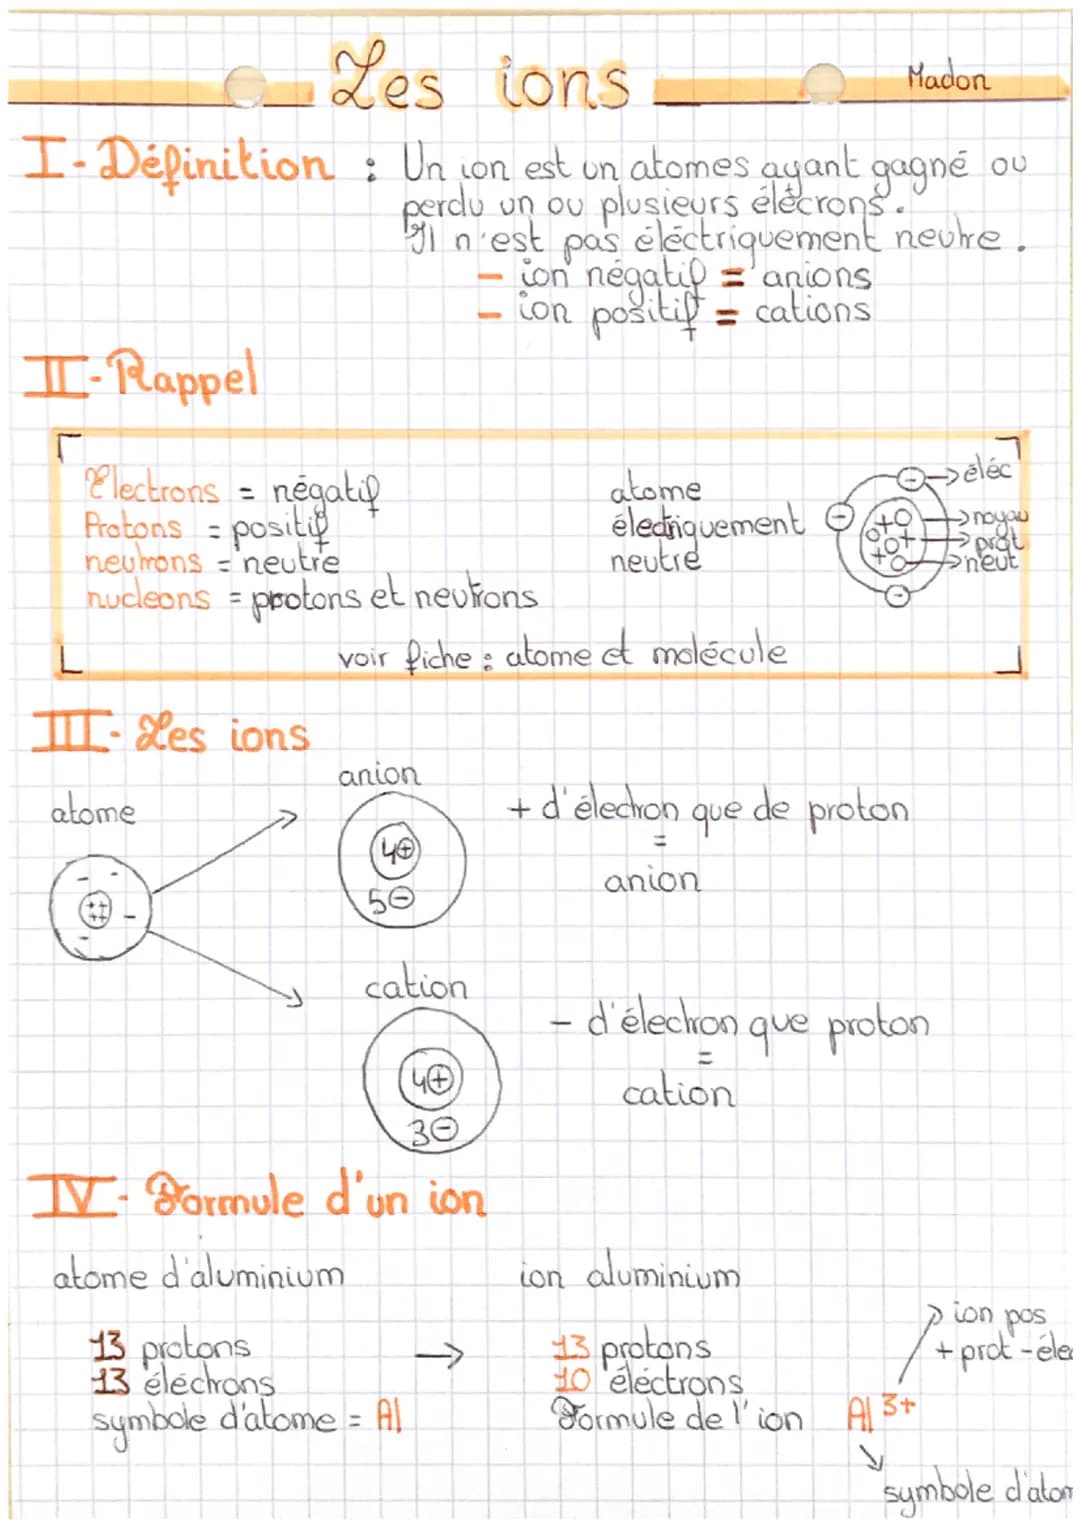 Les ions
Madon
I - Définition : Un ion est un atomes ayant gagné ou
perdu un ou plusieurs élécrons.
Il n'est pas éléctriquement neutre.
- ion négatif = anions
- ion positif = cations
II - Rappel
Electrons = négatif
Protons = positif
neutrons = neutre
nucleons = protons et neutrons
atome
électriquement
neutre
- → éléc
-
+ → noyau
+ → prot
+ → neut
-
voir fiche : atome et molécule
III - Les ions
atome
anion
4+
5-
+ d'électron que de proton
=
anion
cation
4+
3-
- d'électron que proton
=
cation
IV - Formule d'un ion
atome d'aluminium
13 protons
13 éléctrons
symbole d'atome = Al
→
ion aluminium
13 protons
10 éléctrons
Formule de l'ion Al 3+
ion pos
+ prot - élec
symbole d'atom